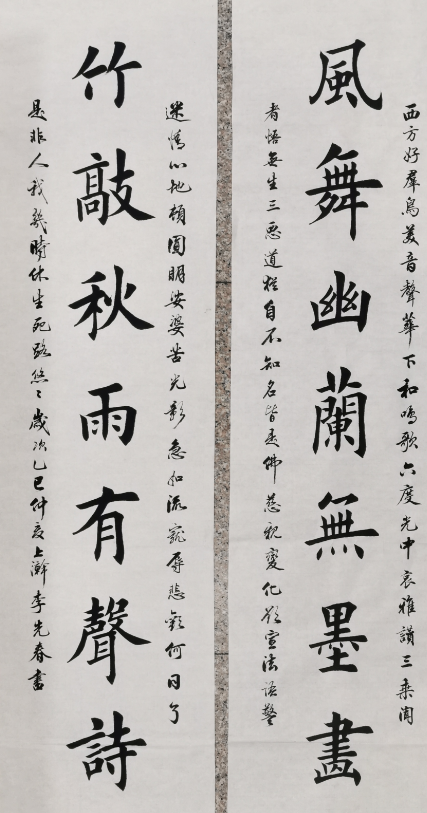 西方好羣鳥美音聲華下和鳴歌六度光中哀雅讚三乘聞
風舞幽蘭無墨畫
者悟無生三惡道猶自不知名皆是佛慈親變化欲宣法語警
迷情心地頓圓明娑婆苦光影急如流寵辱悲歡何日了
竹敲秋雨有聲詩
是非人我幾時休生死路悠々歲次乙巳仲夏上澣李先春書